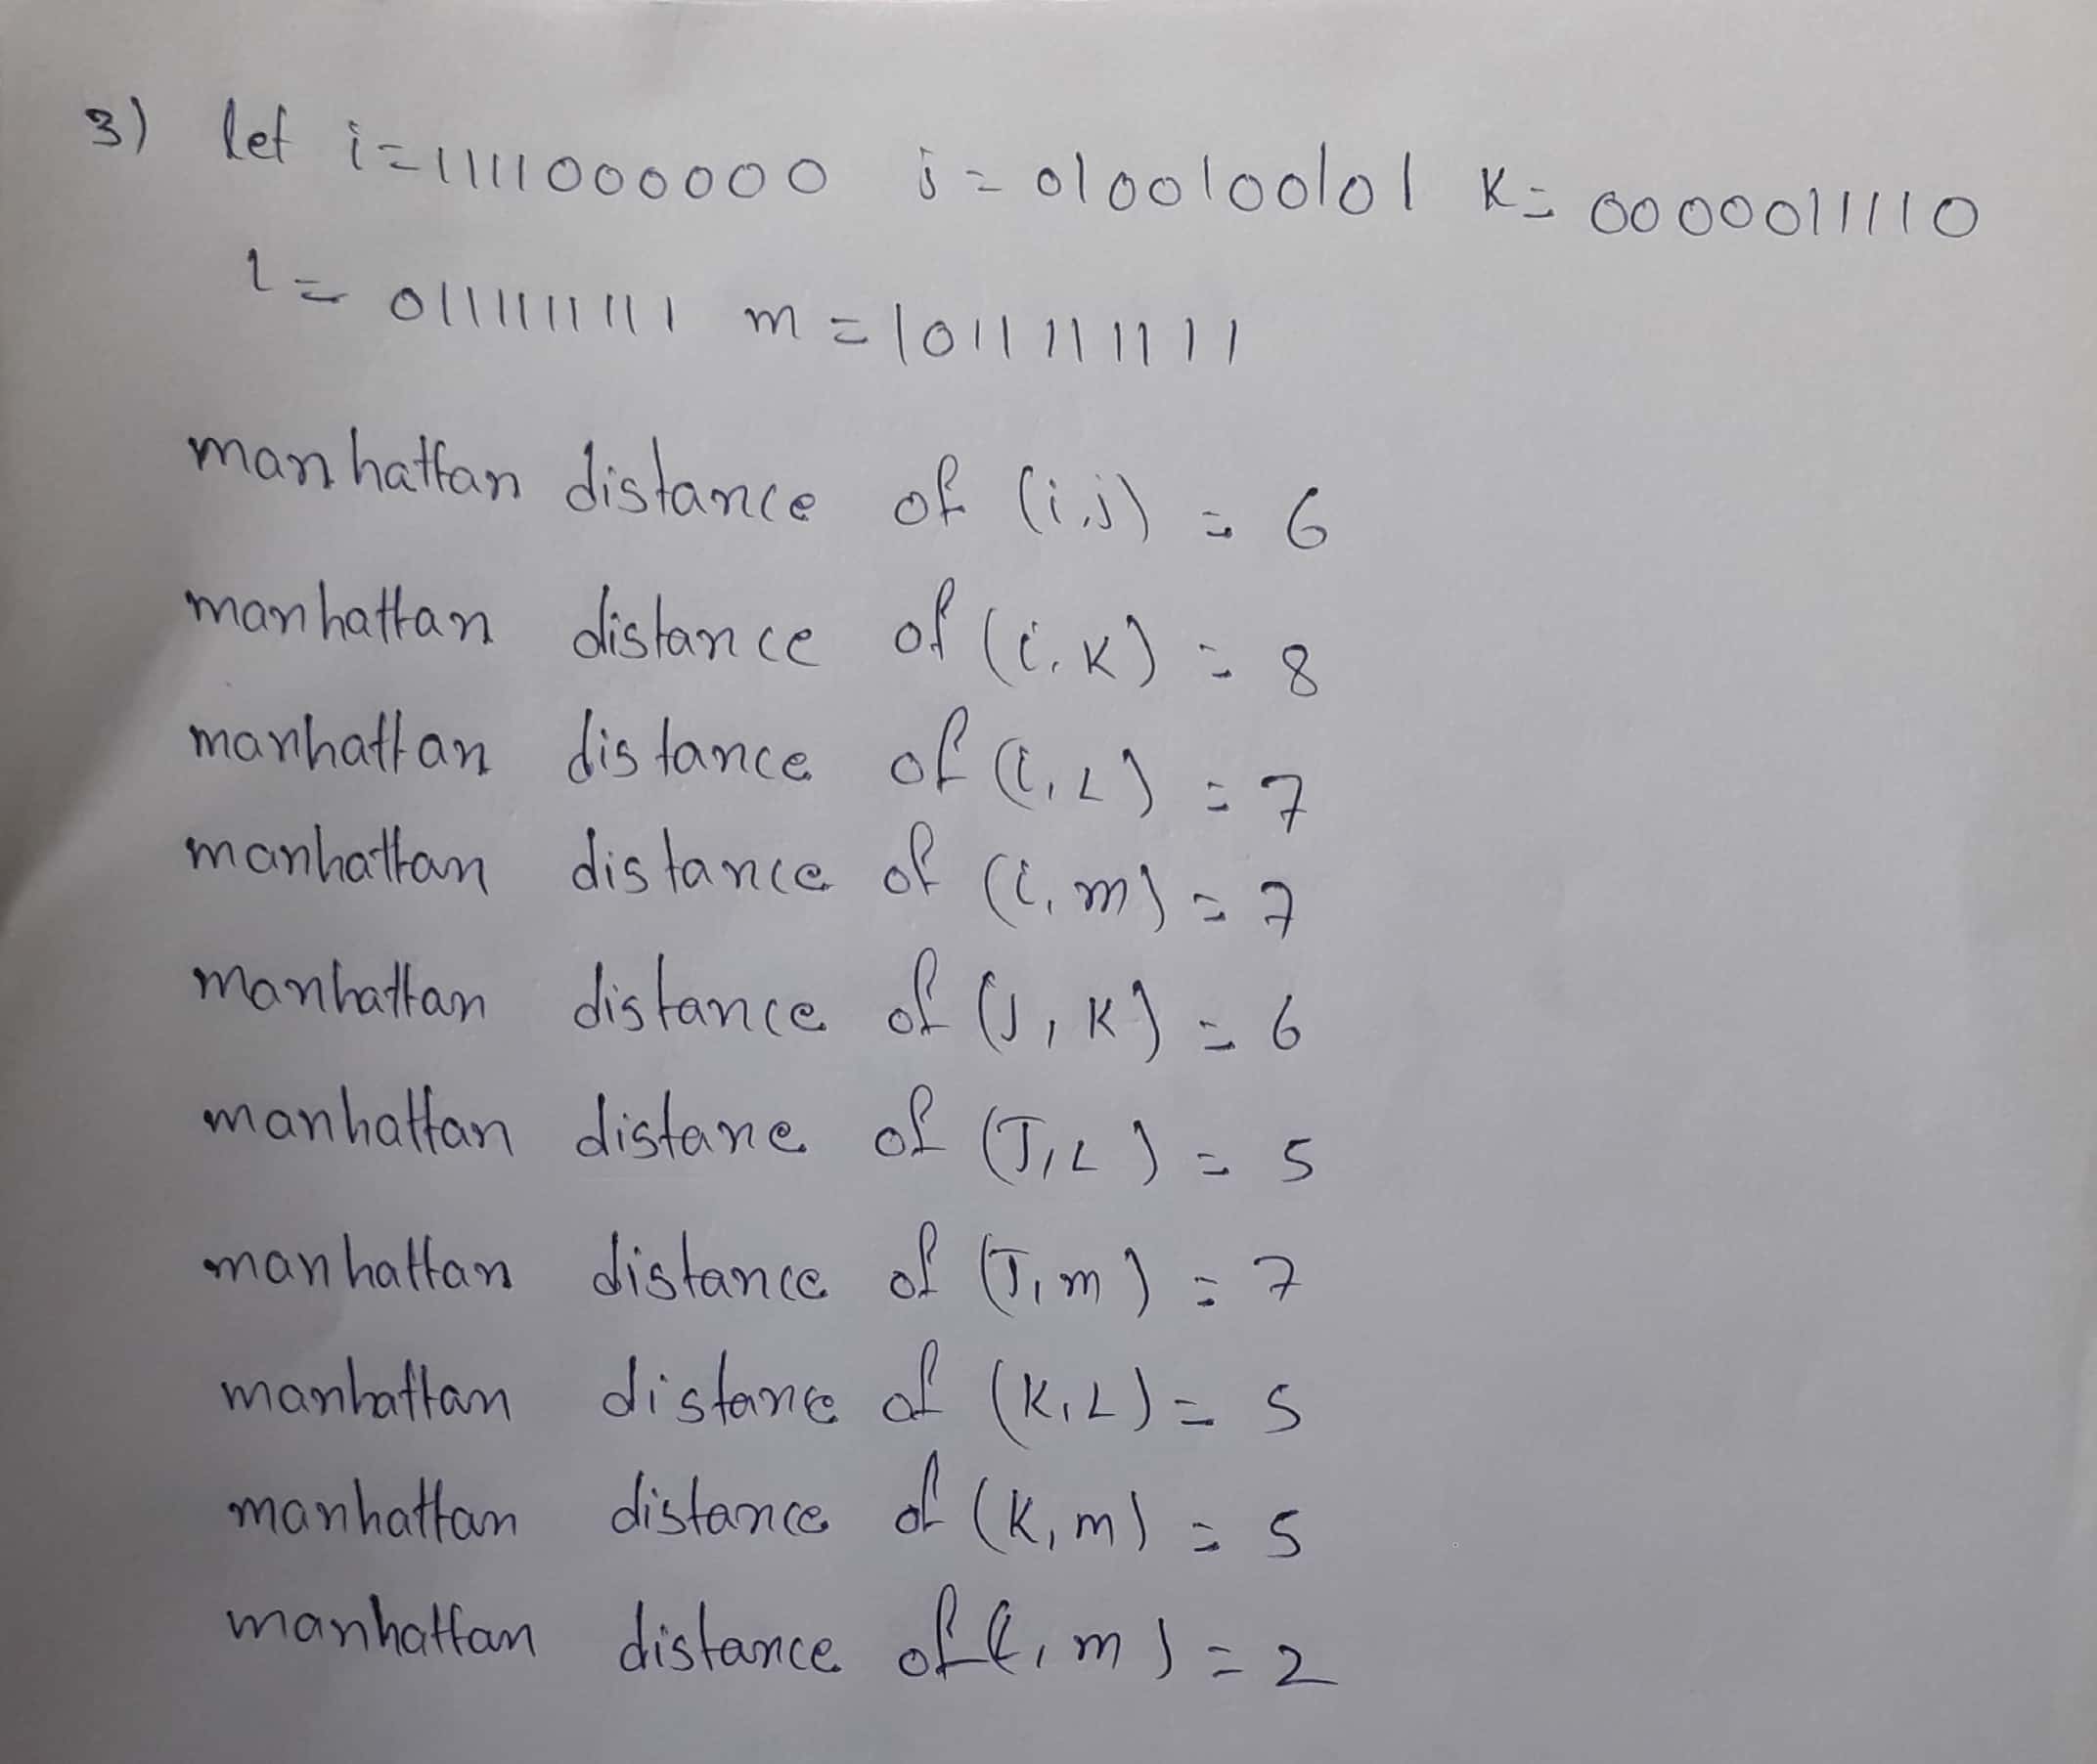 3) let i=1111000000 j=0100100101 K=0000011110
l=0111111111 m=1011111111
manhattan distance of (i,j) = 6
manhattan distance of (i,K) = 8
manhattan distance of (i,L) = 7
manhattan distance of (i,m) = 7
manhattan distance of (J,K) = 6
manhattan distane of (J,L) = 5
manhattan distance of (J,m) = 7
manhattan distance of (K,L) = 5
manhattan distance of (K,m) = 5
manhattan distance of (L,m) = 2